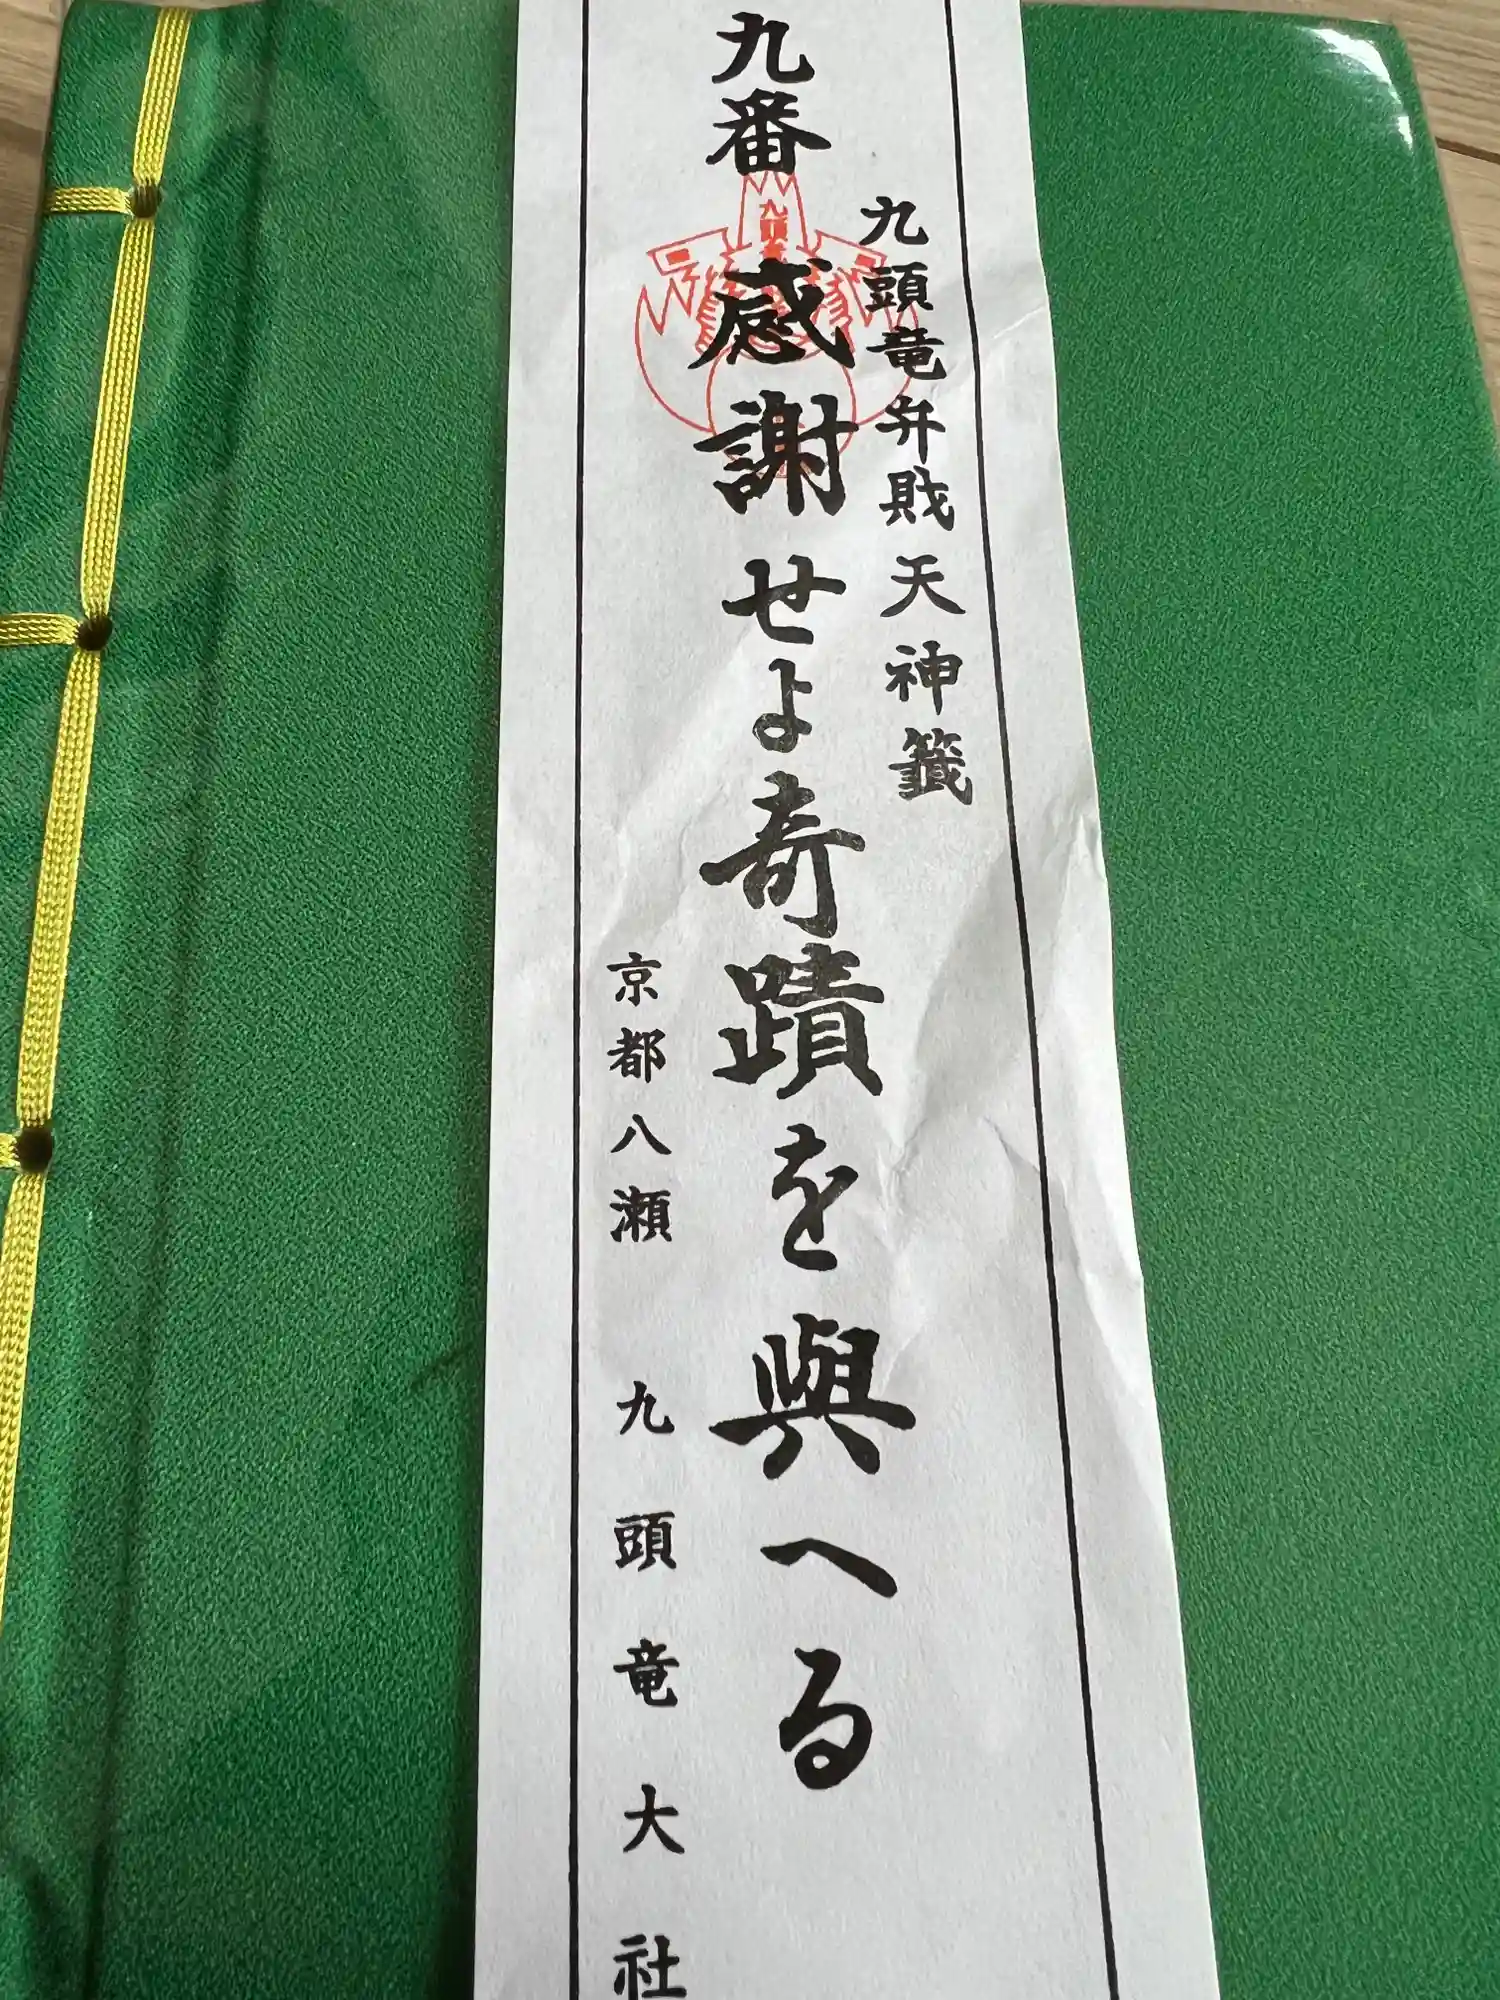 九番
九頭竜弁財天神籤
感謝せよ奇蹟を與へる
京都八瀬 九頭竜大社